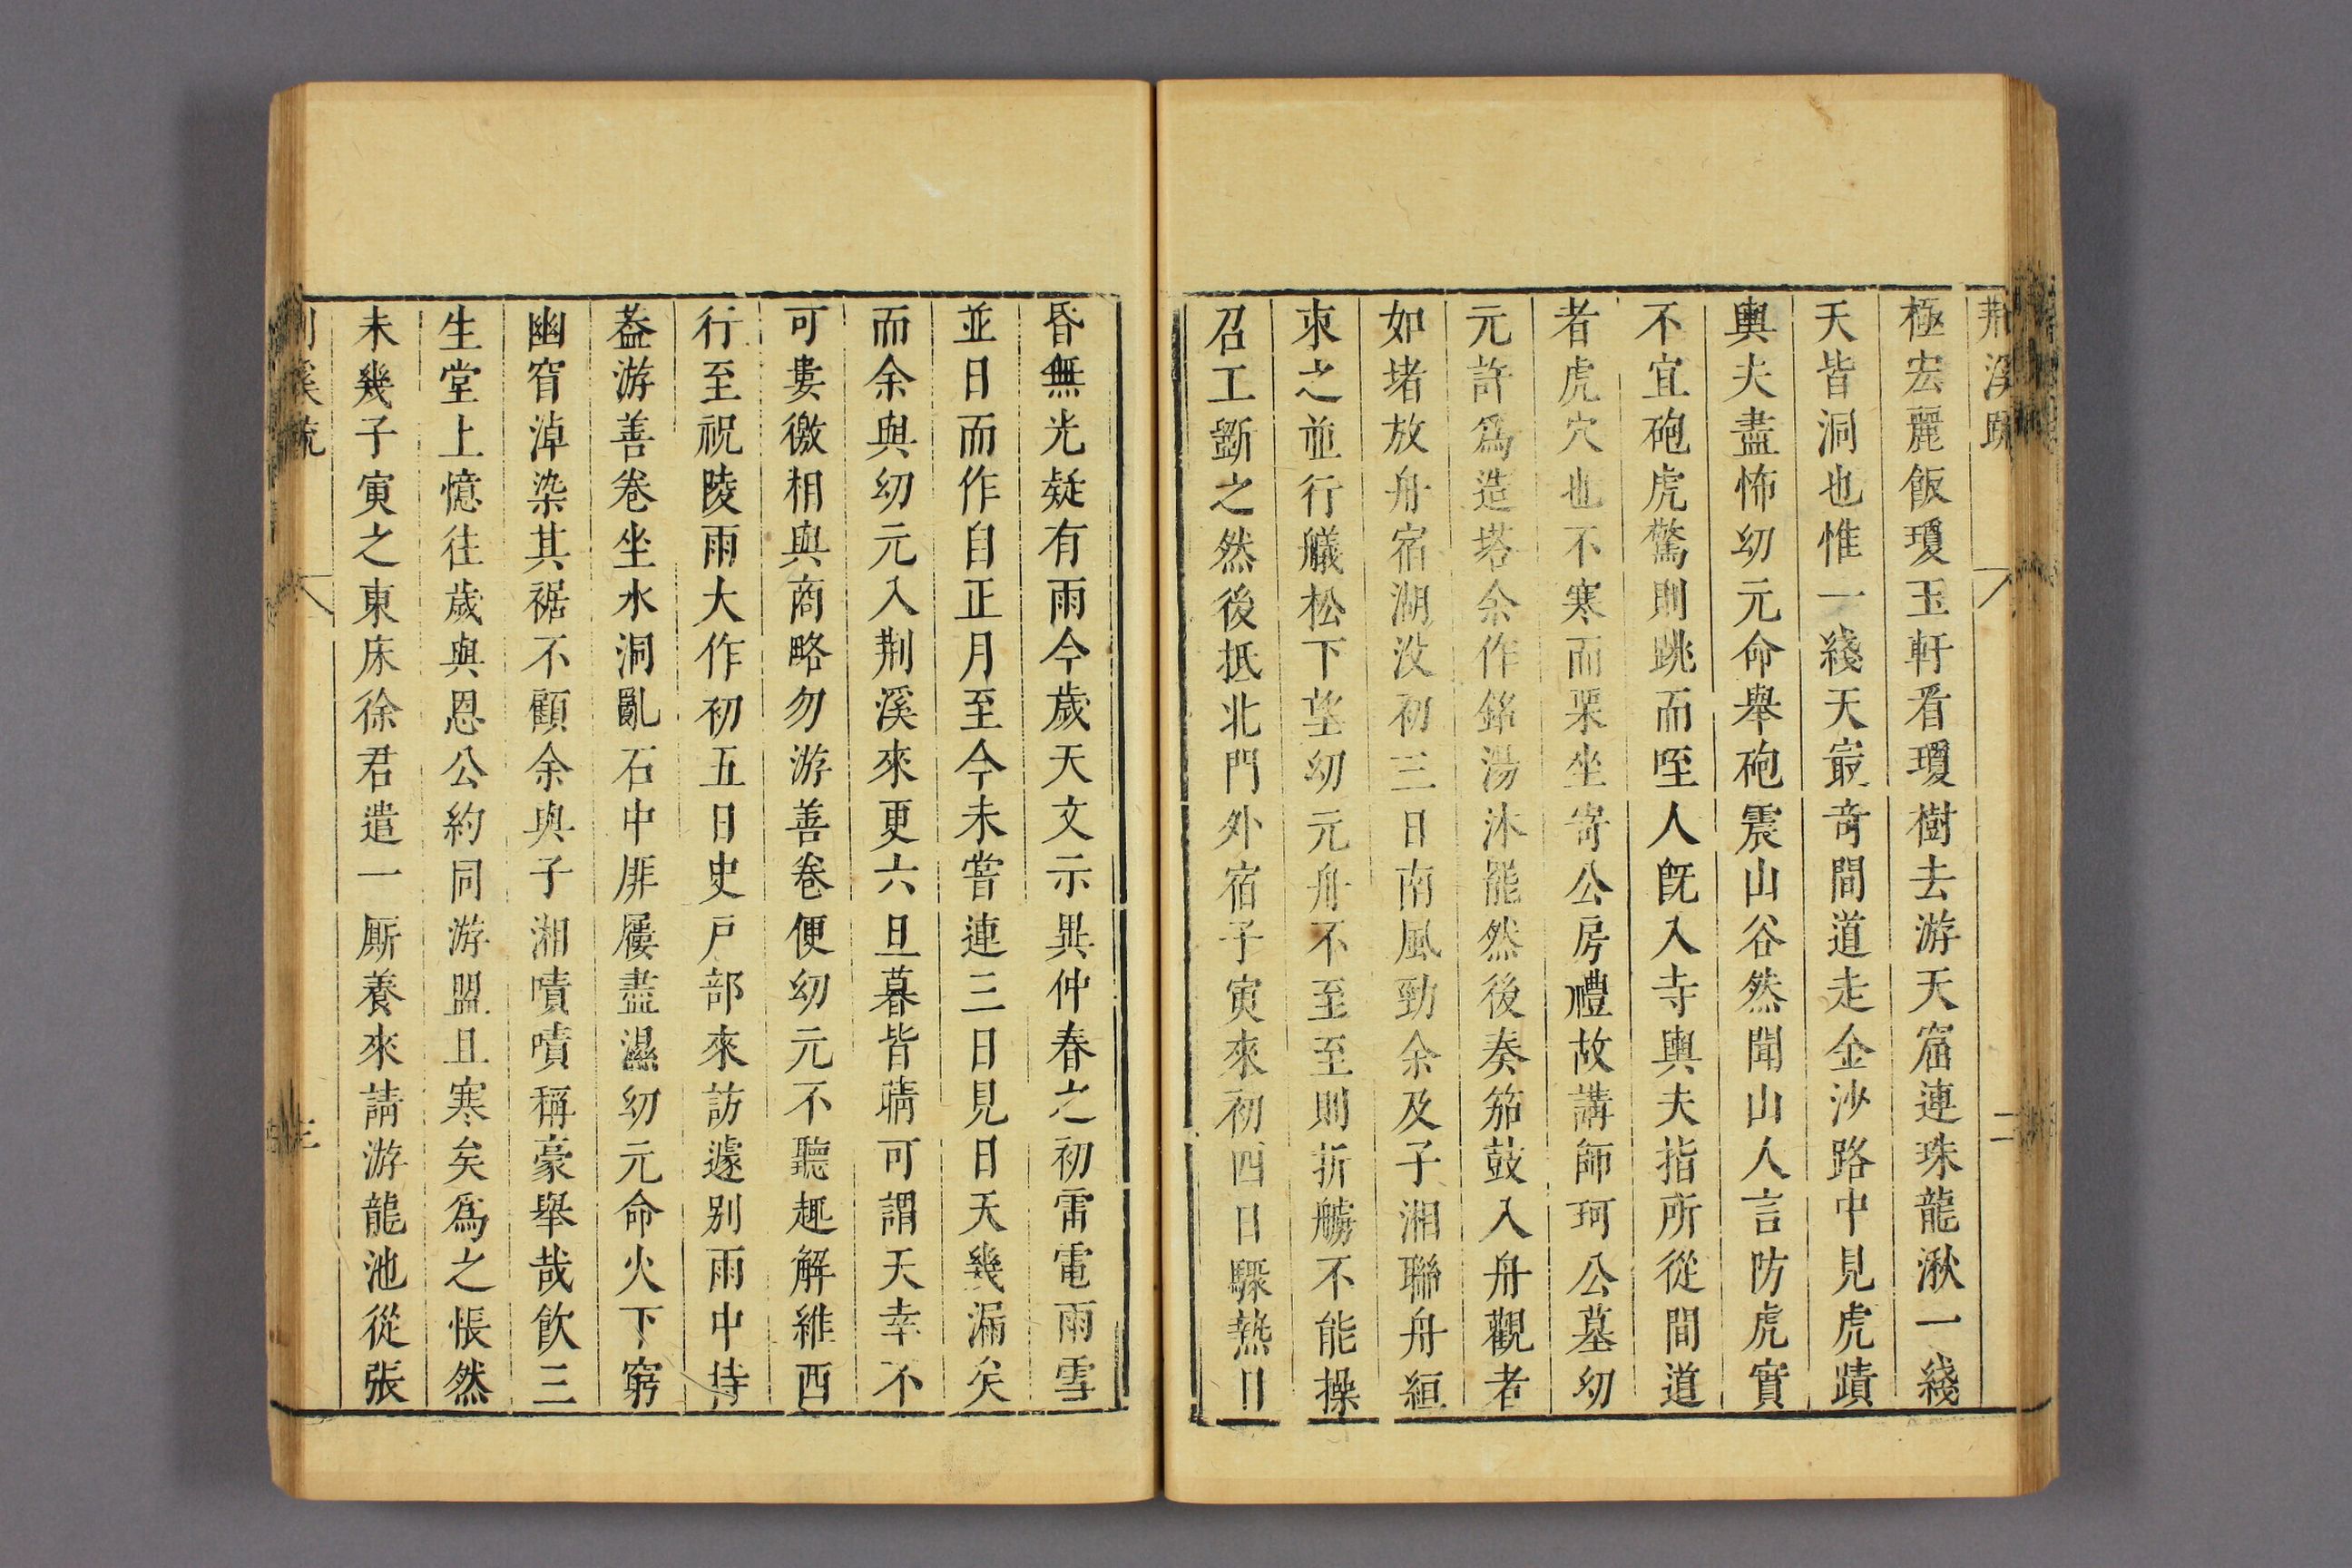 荆溪䟽
二
極宏麗飯瓊玉軒看瓊樹去游天窟連珠龍湫一綫
天皆洞也惟一綫天㝡竒間道走金沙路中見虎蹟
輿夫盡怖幼元命舉砲震山谷然聞山人言防虎實
不宜砲虎驚則跳而咥人旣入寺輿夫指所從間道
者虎穴也不寒而栗坐寄公房禮故講師珂公墓幼
元許爲造塔余作銘湯沐罷然後奏笳鼓入舟觀者
如堵放舟宿湖㳇初三日南風勁余及子湘聯舟絙
朿之並行艤松下望幼元舟不至至則折艣不能操
召工斵之然後抵北門外宿子寅來初四日驟熱日
昏無光疑有雨今歲天文示異仲春之初雷電雨雪
並日而作自正月至今未嘗連三日見日天幾漏矣
而余與幼元入荆溪來更六旦暮皆晴可謂天幸不
可婁徼相與商略勿游善卷便幼元不聽趣解維西
行至祝陵雨大作初五日史戸部來訪遽别雨中持
葢游善卷坐水洞亂石中厞屨盡濕幼元命火下窮
幽窅淖染其裾不顧余與子湘嘖嘖稱豪舉哉飲三
生堂上憶往歲與恩公約同游盟且寒矣爲之悵然
未幾子寅之東床徐君遣一厮養來請游龍池從張
溪䟽
三